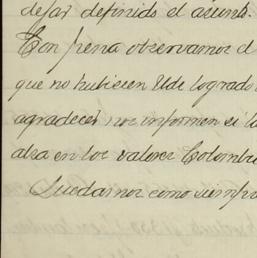 dejar definido el asunto.
Con pena observamos d
que no hubiesen Uds logrado
agradecer nos informen si la
alza en los valores Colombi
Quedamos como siempre